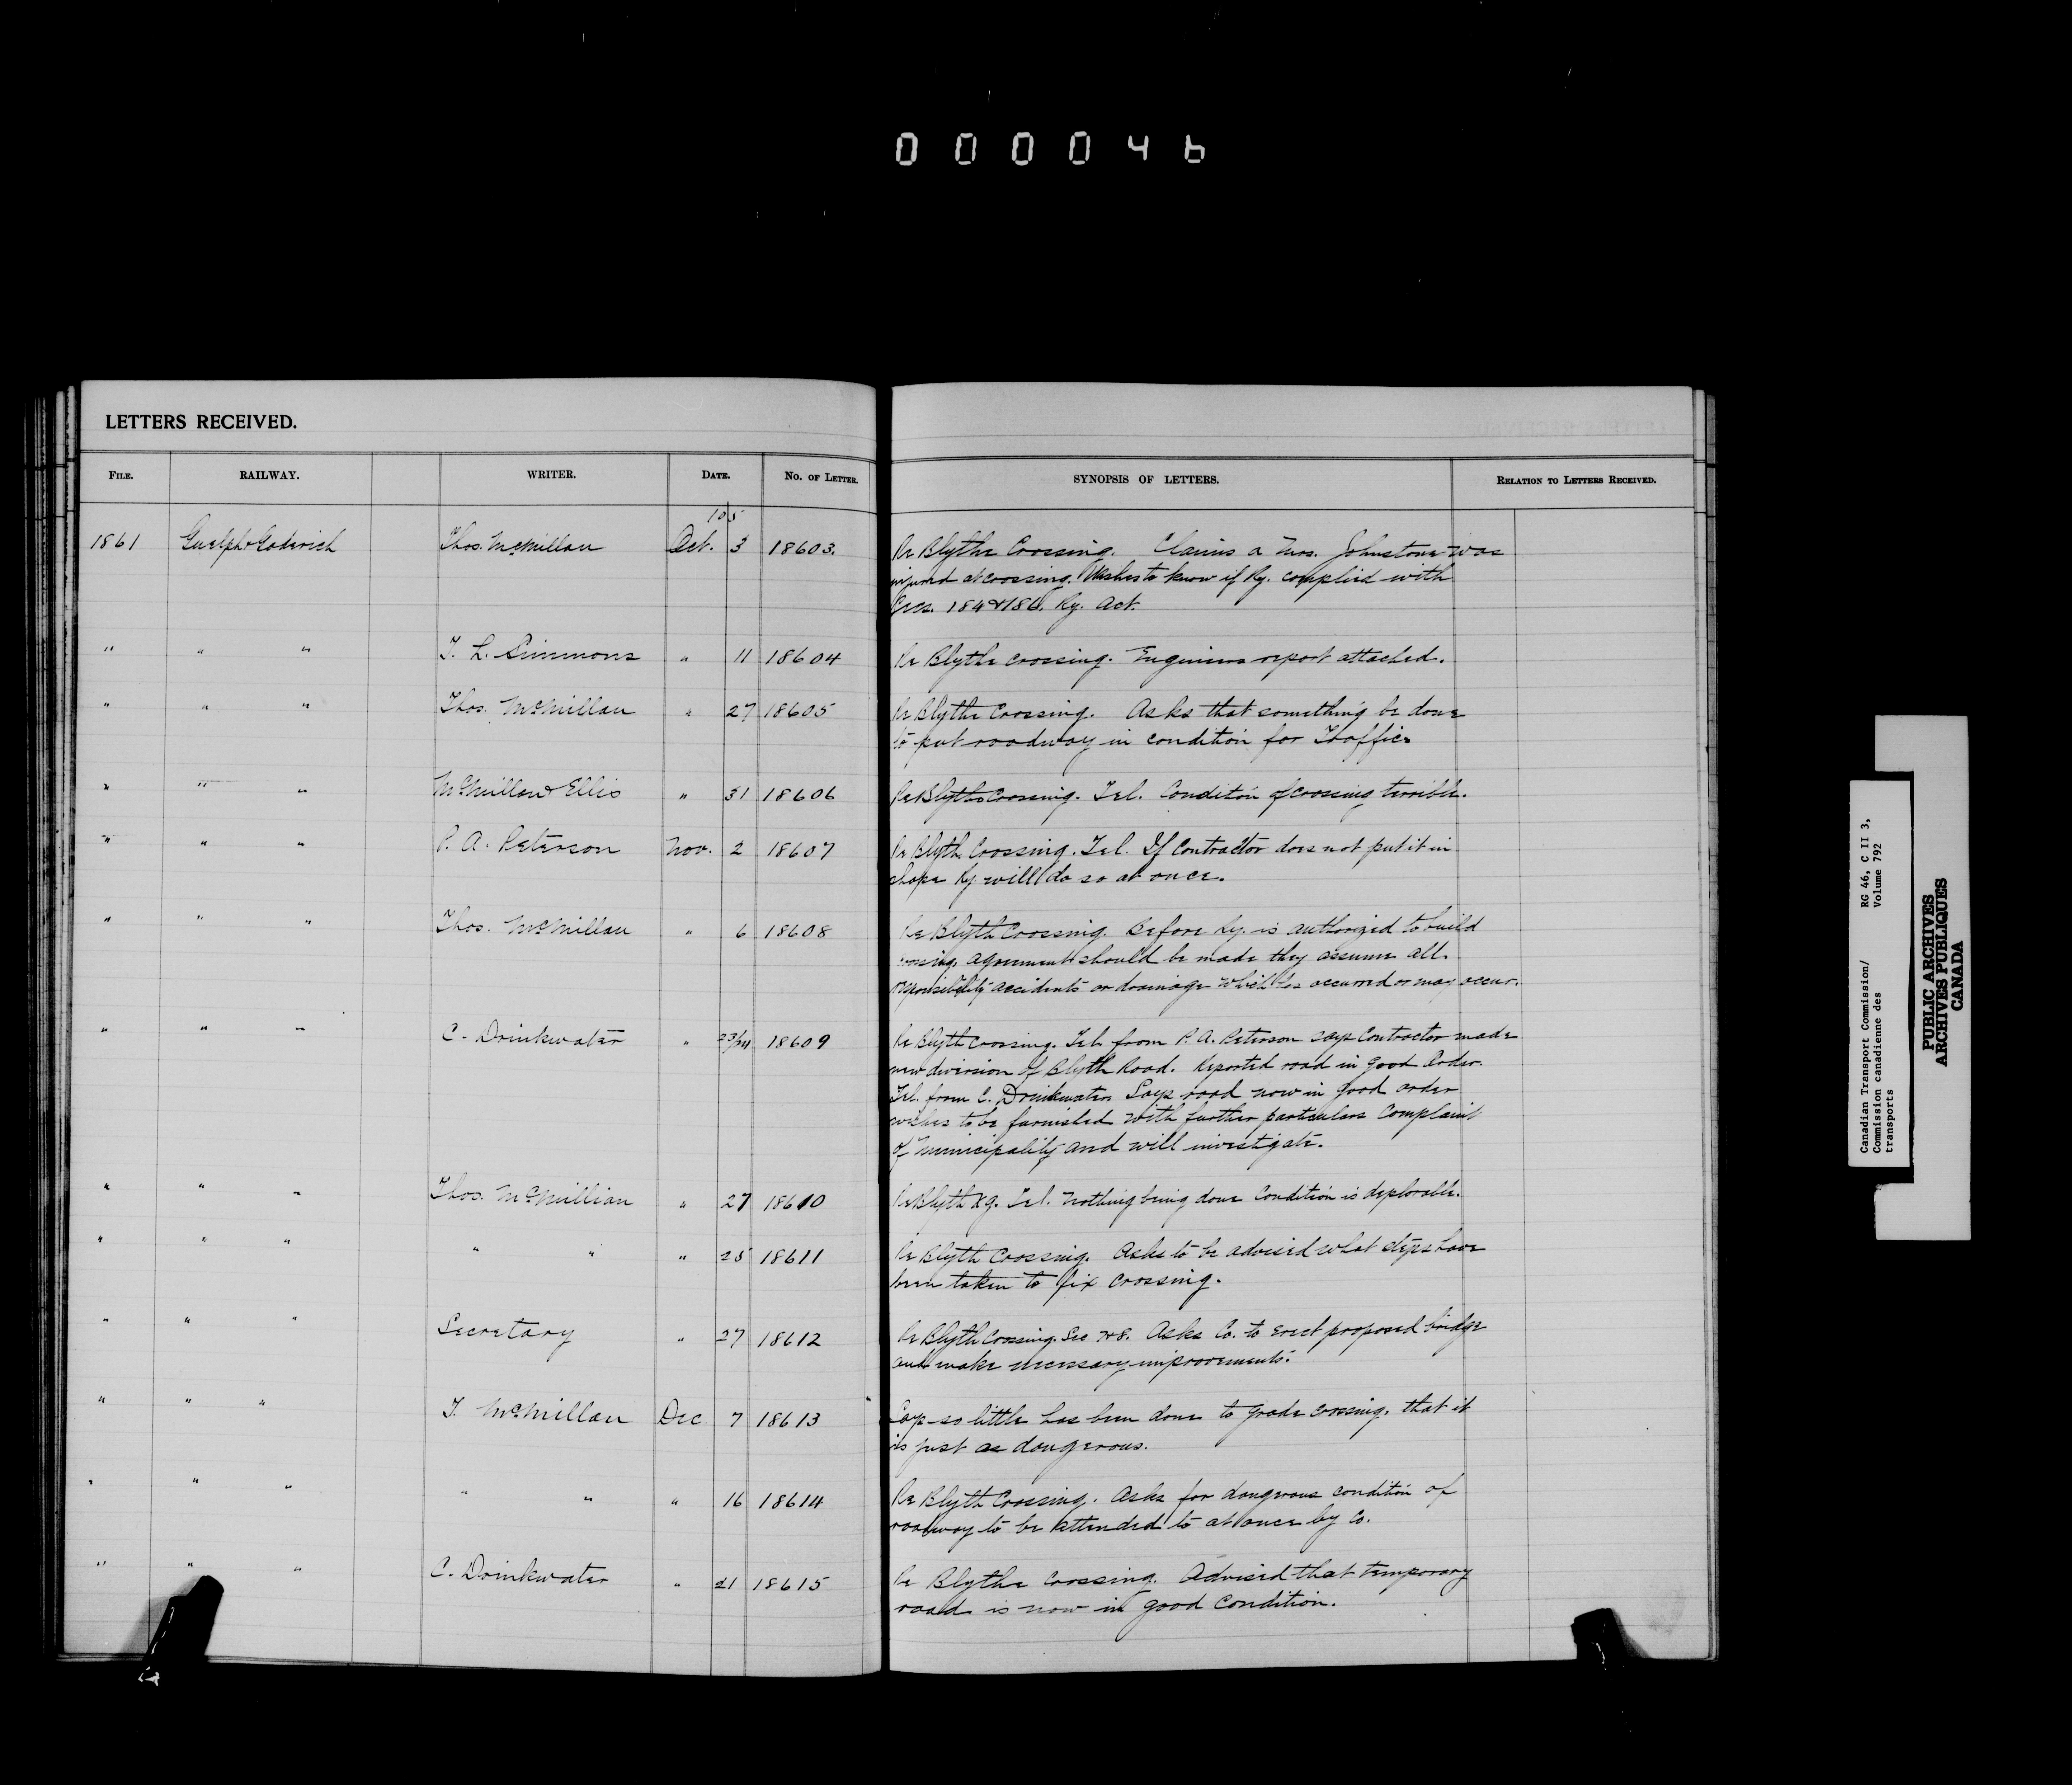 000046
LETTERS RECEIVED.
FILE. RAILWAY. WRITER. DATE. No. of Letter. SYNOPSIS OF LETTERS. Relation to Letters Received.
105
1861 Guelph & Goderich Thos. McMillan Oct. 3 18603. Re Blythe Crossing. Claims a Mrs. Johnstone was
injured at crossing. Wishes to know if Ry. complied with
Secs. 184 & 186. Ry. Act.
" " " T. L. Simmons " 11 18604 Re Blythe crossing. Engineers report attached.
" " " Thos. McMillan " 27 18605 Re Blythe Crossing. Asks that something be done
to put roadway in condition for Traffic.
" " " McMillan & Ellis " 31 18606 Re Blythe Crossing. Tel. Condition of crossing terrible.
" " " P. A. Peterson Nov. 2 18607 Re Blyth Crossing. Tel. If Contractor does not put it in
shape Ry. will do so at once.
" " " Thos. McMillan " 6 18608 Re Blyth Crossing. Before Ry. is authorized to build
crossing, agreement should be made they assume all
responsibility accidents or drainage which has occurred or may occur.
" " " C. Drinkwater " 23/24 18609 Re Blyth crossing. Tel. from P. A. Peterson says Contractor made
new diversion of Blyth Road. Reported road in good order.
Tel. from C. Drinkwater Says road now in good order
wishes to be furnished with further particulars Complaint
of Municipality and will investigate.
" " " Thos. McMillian " 27 18610 Re Blyth Xg. Tel. Nothing being done Condition is deplorable.
" " " " " " 25 18611 Re Blyth Crossing. Asks to be advised what steps have
been taken to fix crossing.
" " " Secretary " 27 18612 Re Blyth Crossing. See 7 & 8. Asks Co. to erect proposed bridge
and make necessary improvements.
" " " T. McMillan Dec 7 18613 Says so little has been done to grade crossing, that it
is just as dangerous.
" " " " " " 16 18614 Re Blyth Crossing. Asks for dangerous condition of
roadway to be attended to at once by Co.
" " " C. Drinkwater " 21 18615 Re Blythe Crossing. Advised that temporary
road is now in good condition.
Canadian Transport Commission/ RG 46, C II 3,
Commission canadienne des Volume 792
transports
PUBLIC ARCHIVES
ARCHIVES PUBLIQUES
CANADA